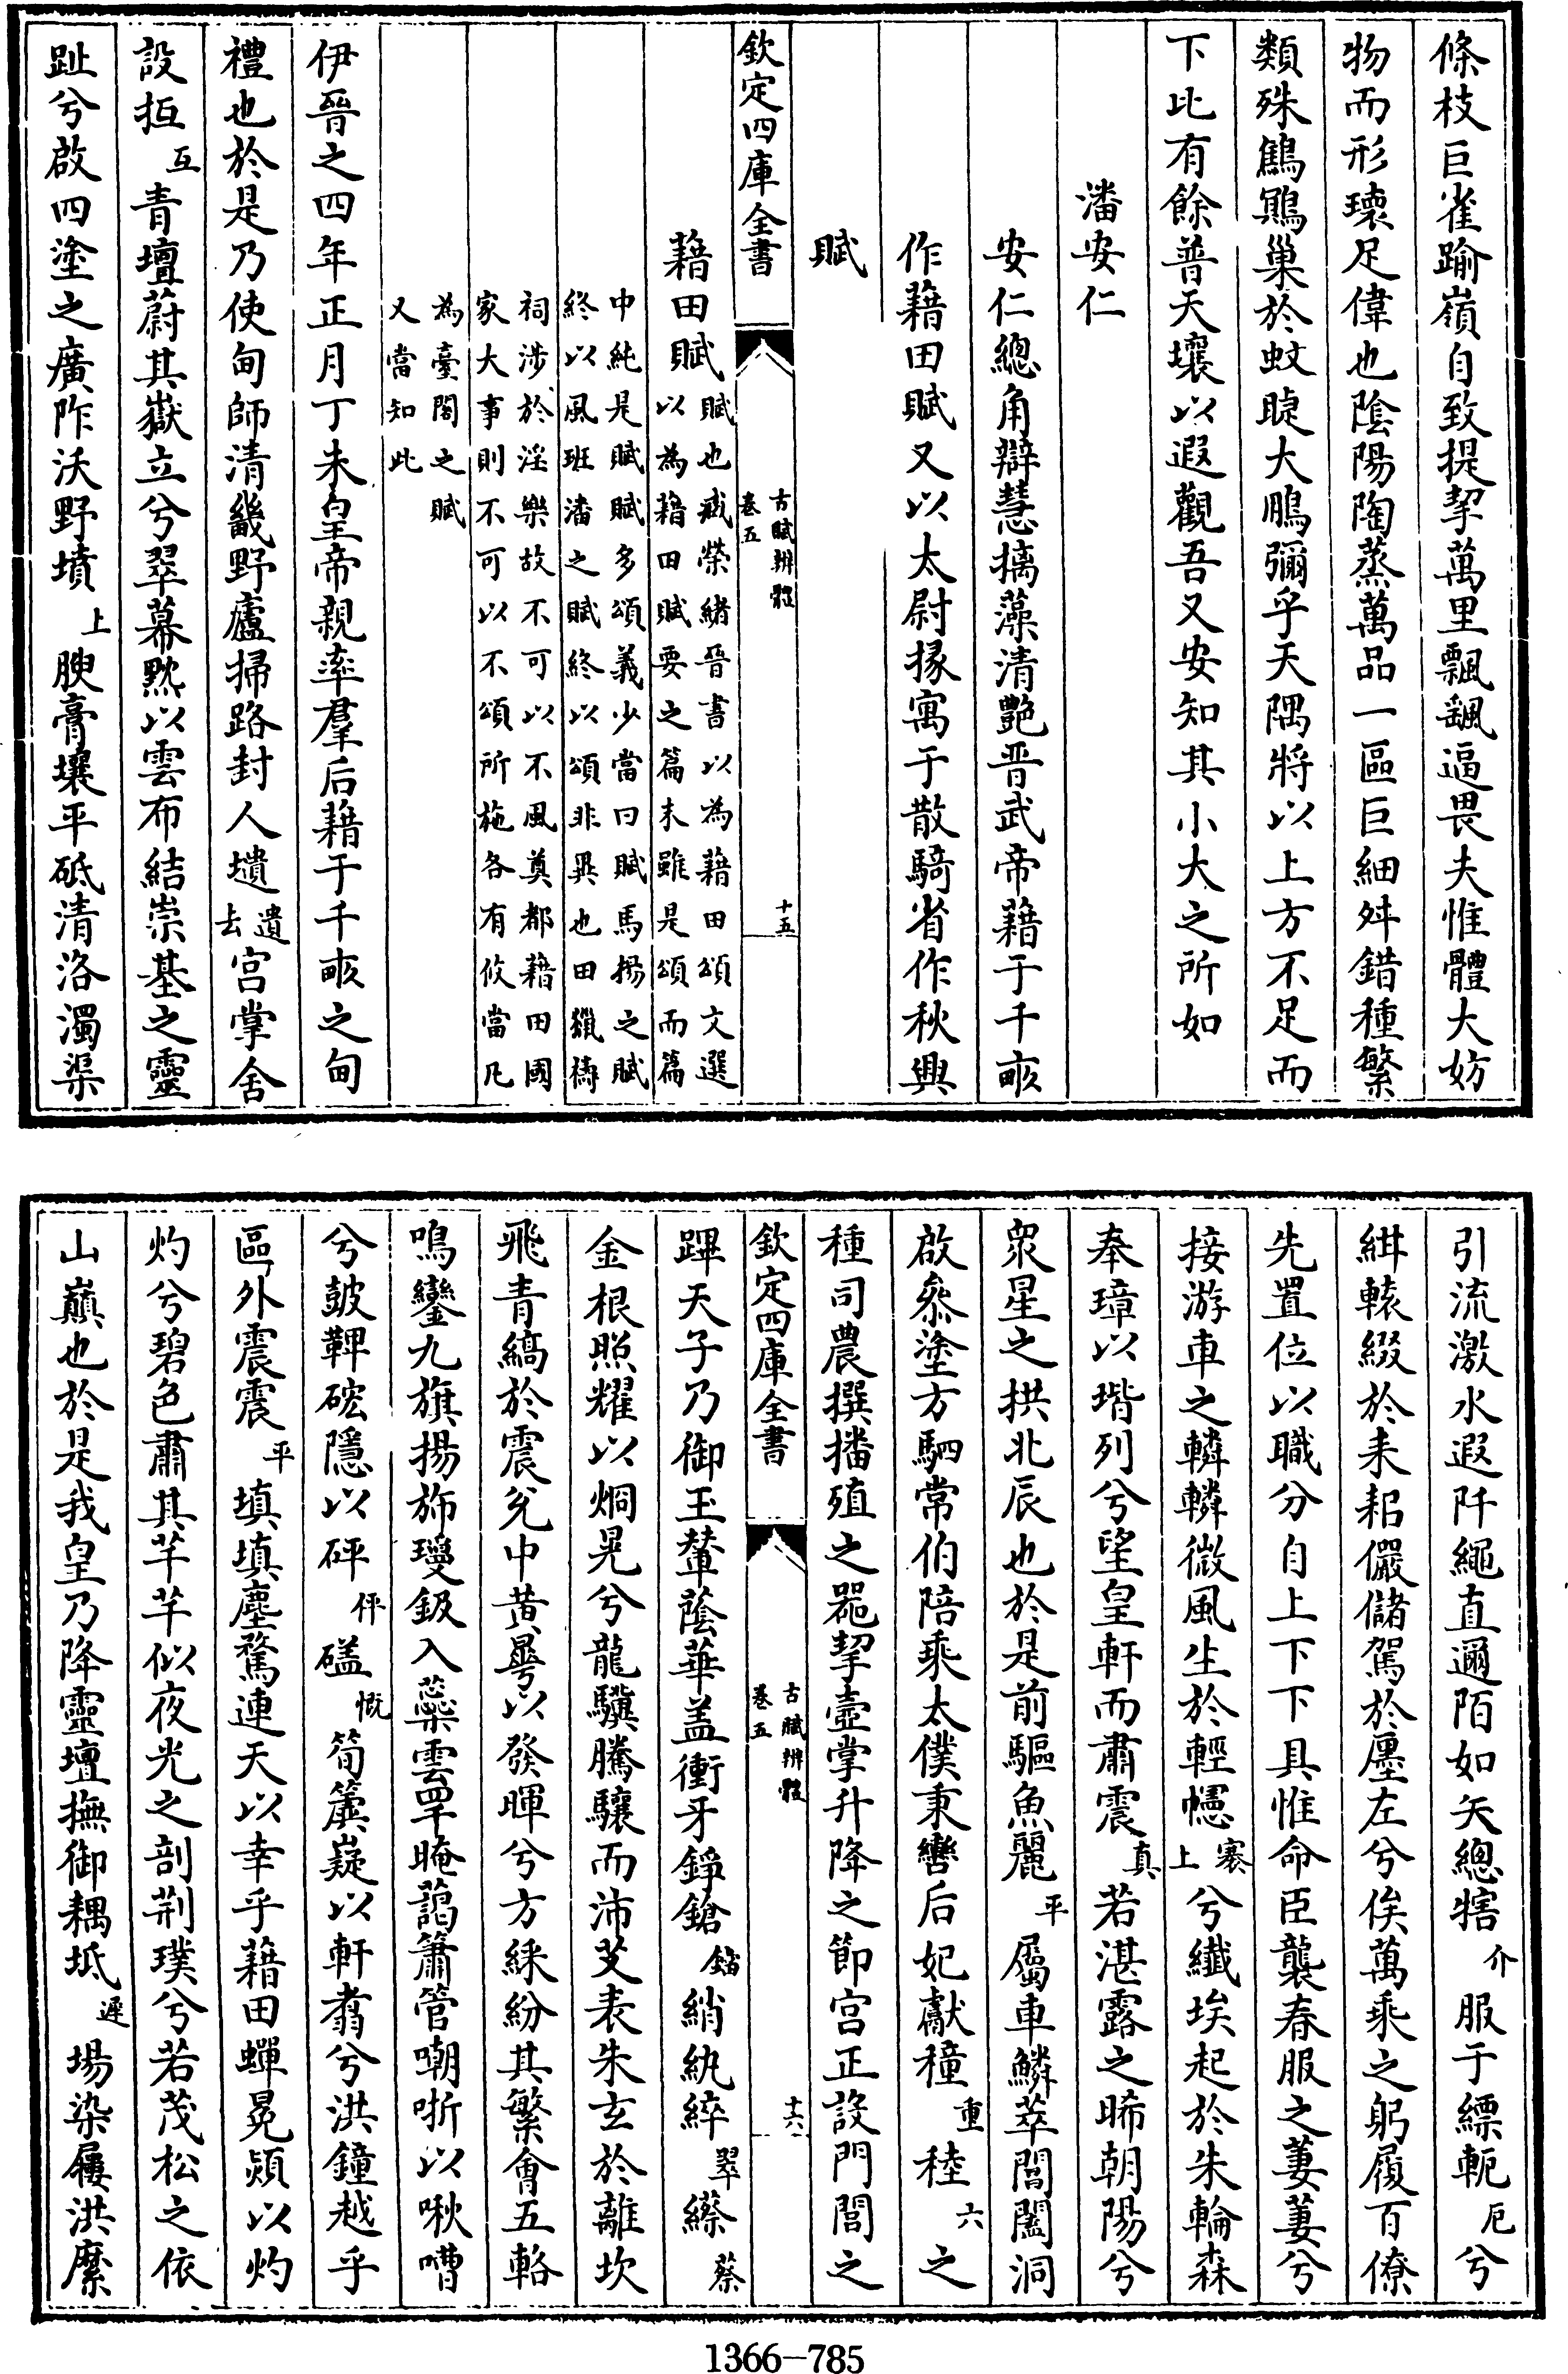 條枝巨雀踰嶺自致提挈萬里飄颻逼畏夫惟體大妨
物而形瓌足偉也陰陽陶蒸萬品一區巨細舛錯種繁
類殊鷦鷯巢於蚊睫大鵬彌乎天隅將以上方不足而
下比有餘普天壤以遐觀吾又安知其小大之所如
潘安仁
安仁總角辯慧摛藻清艷晉武帝藉于千畝
作藉田賦又以太尉掾寓于散騎省作秋興
賦
欽定四庫全書
古賦辨體
卷五
十五
藉田賦
賦也臧榮緒晉書以為藉田頌文選
以為藉田賦要之篇末雖是頌而篇
中純是賦賦多頌義少當曰賦馬揚之賦
終以風班潘之賦終以頌非異也田獵禱
祠涉於淫樂故不可以不風奠都藉田國
家大事則不可以不頌所施各有攸當凡
為臺閣之賦
又當知此
伊晉之四年正月丁未皇帝親率羣后藉于千畝之甸
禮也於是乃使甸師清畿野廬掃路封人壝遺去宮掌舍
設拒互青壇蔚其嶽立兮翠幕黕以雲布結崇基之靈
趾兮啟四塗之廣阼沃野墳上腴膏壤平砥清洛濁渠
引流激水遐阡繩直邇陌如矢總犗介服于縹軛厄兮
紺轅綴於耒耜儼儲駕於廛左兮俟萬乘之躬履百僚
先置位以職分自上下下具惟命臣襲春服之萋萋兮
接游車之轔轔微風生於輕幰寋上兮纖埃起於朱輪森
奉璋以堦列兮望皇軒而肅震真若湛露之晞朝陽兮
眾星之拱北辰也於是前驅魚麗平屬車鱗萃閶闔洞
啟叅塗方駟常伯陪乘太僕秉轡后妃獻穜重稑六之
種司農撰播殖之器挈壺掌升降之節宮正設門閭之
欽定四庫全書
古賦辨體
卷五
十六
蹕天子乃御玉輦蔭華盖衝牙錚鎗鏳綃紈綷翠縩蔡
金根照耀以烱晃兮龍驥騰驤而沛艾表朱玄於離坎
飛青縞於震兌中黃曅以發暉兮方綵紛其繁會五輅
鳴鑾九旗揚斾瓊鈒入蘂雲罕晻藹簫管嘲哳以啾嘈
兮鼓鞞硡隱以砰怦礚慨筍簴嶷以軒翥兮洪鐘越乎
區外震震平填填塵騖連天以幸乎藉田蟬冕熲以灼
灼兮碧色肅其芊芊似夜光之剖荆璞兮若茂松之依
山巔也於是我皇乃降靈壇撫御耦坻遲場染屨洪縻
1366-785